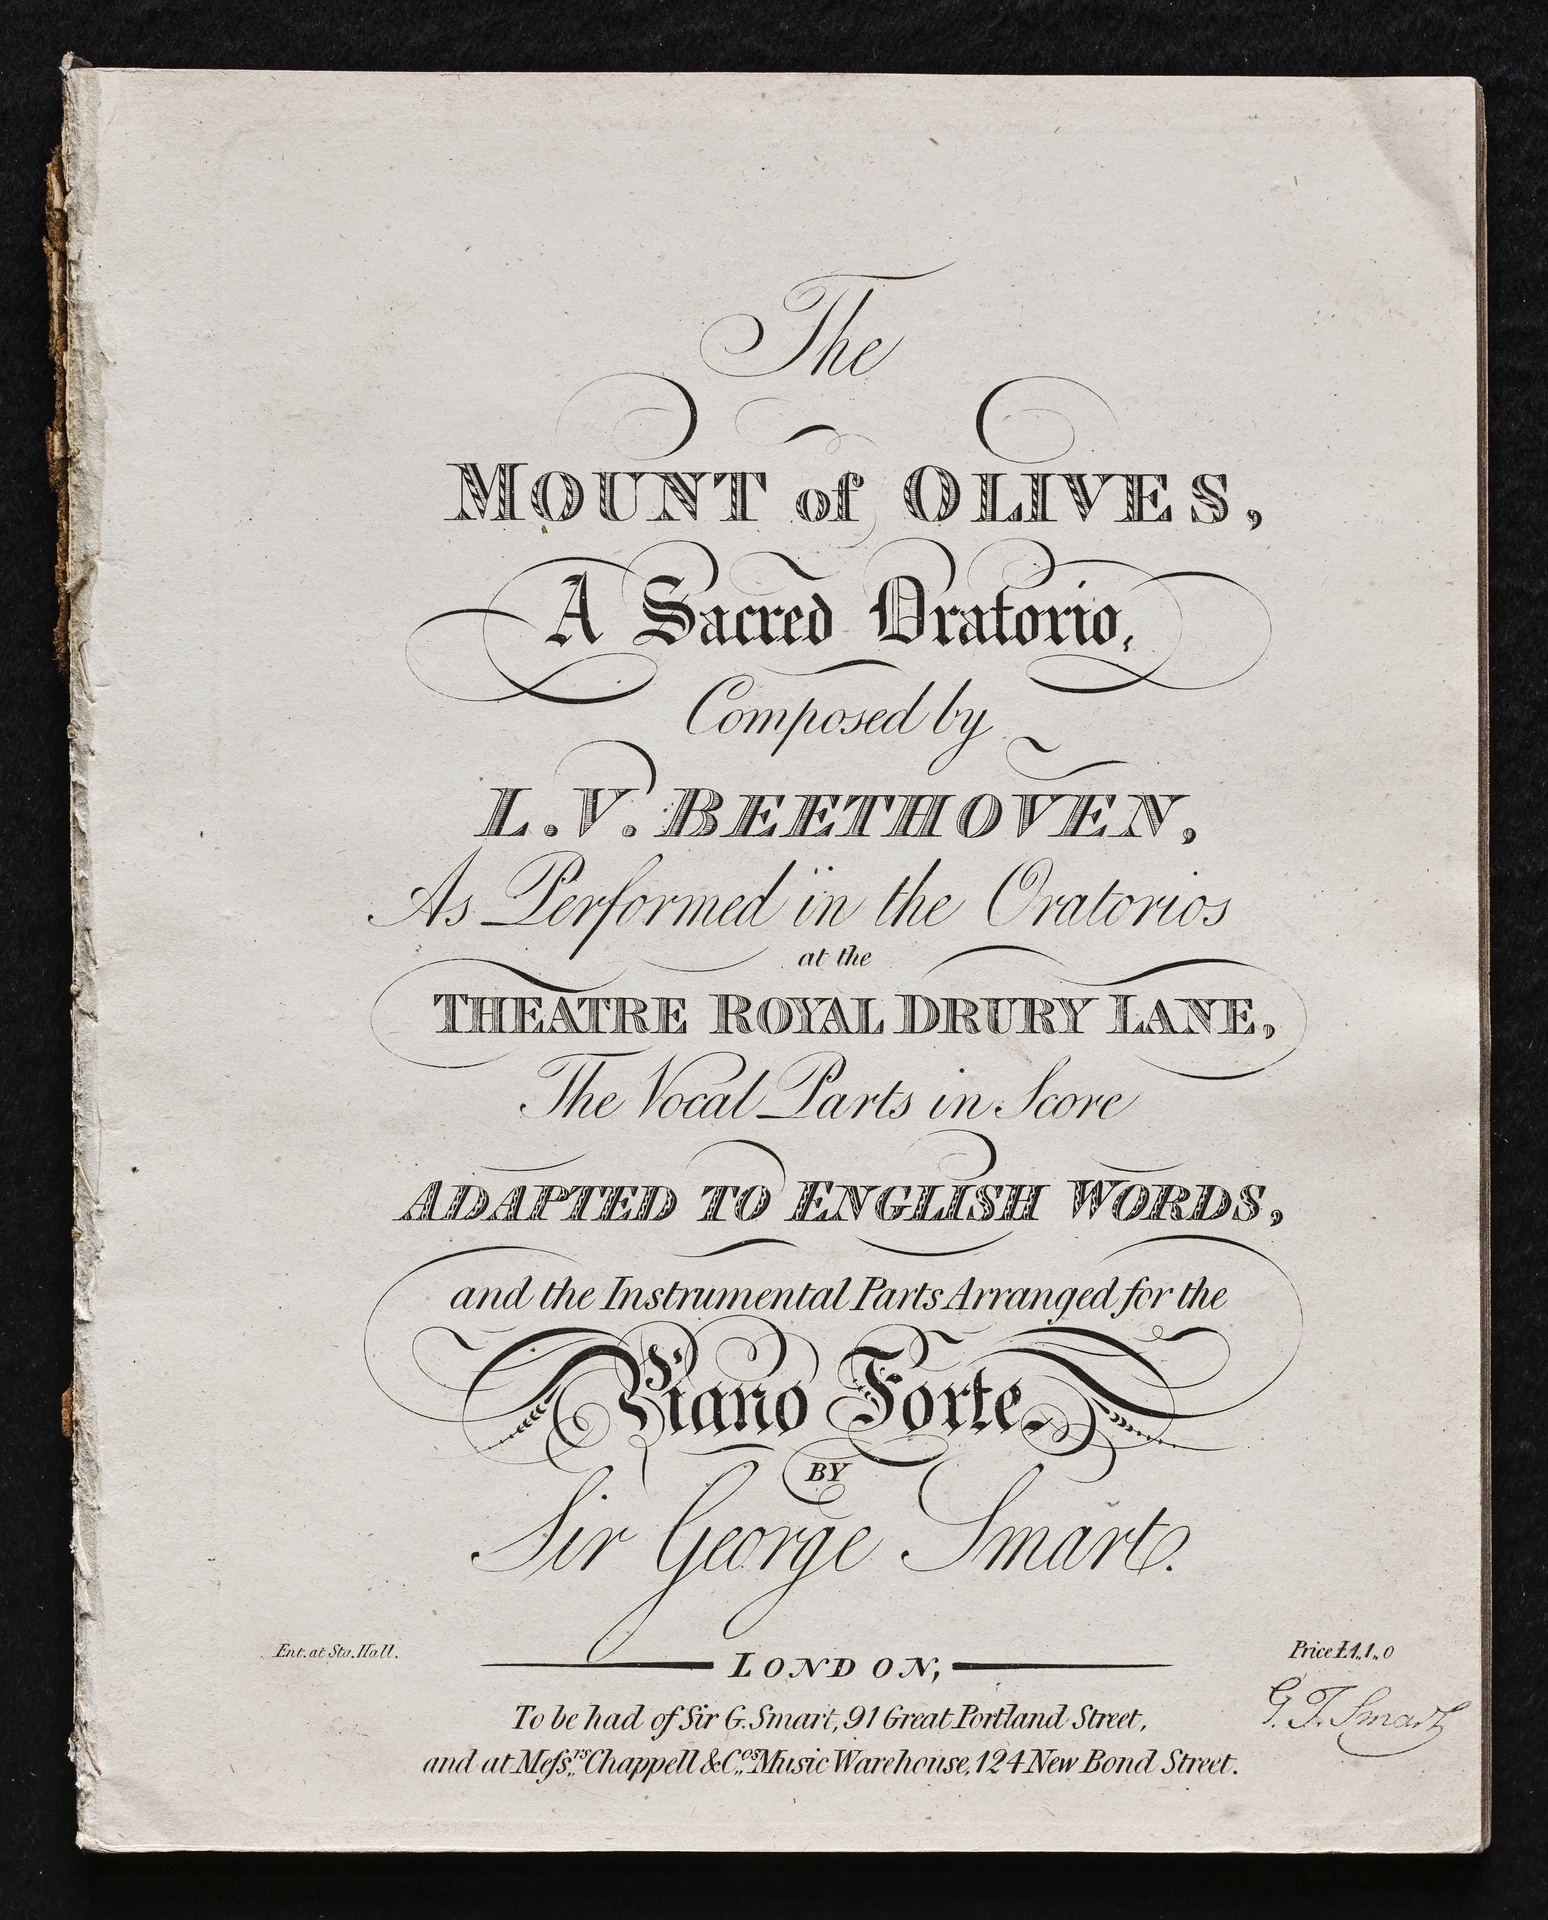 The
MOUNT of OLIVES,
A Sacred Oratorio,
Composed by
L.V. BEETHOVEN,
As Performed in the Oratorios
at the
THEATRE ROYAL DRURY LANE,
The Vocal Parts in Score
ADAPTED TO ENGLISH WORDS,
and the Instrumental Parts Arranged for the
Piano Forte,
BY
Sir George Smart.
Ent. at Sta. Hall.
LONDON,
Price £1,,1,,0
To be had of Sir G. Smart, 91 Great Portland Street,
G. T. Smart
and at Meſsrs,, Chappell & Cos,, Music Warehouse, 124 New Bond Street.